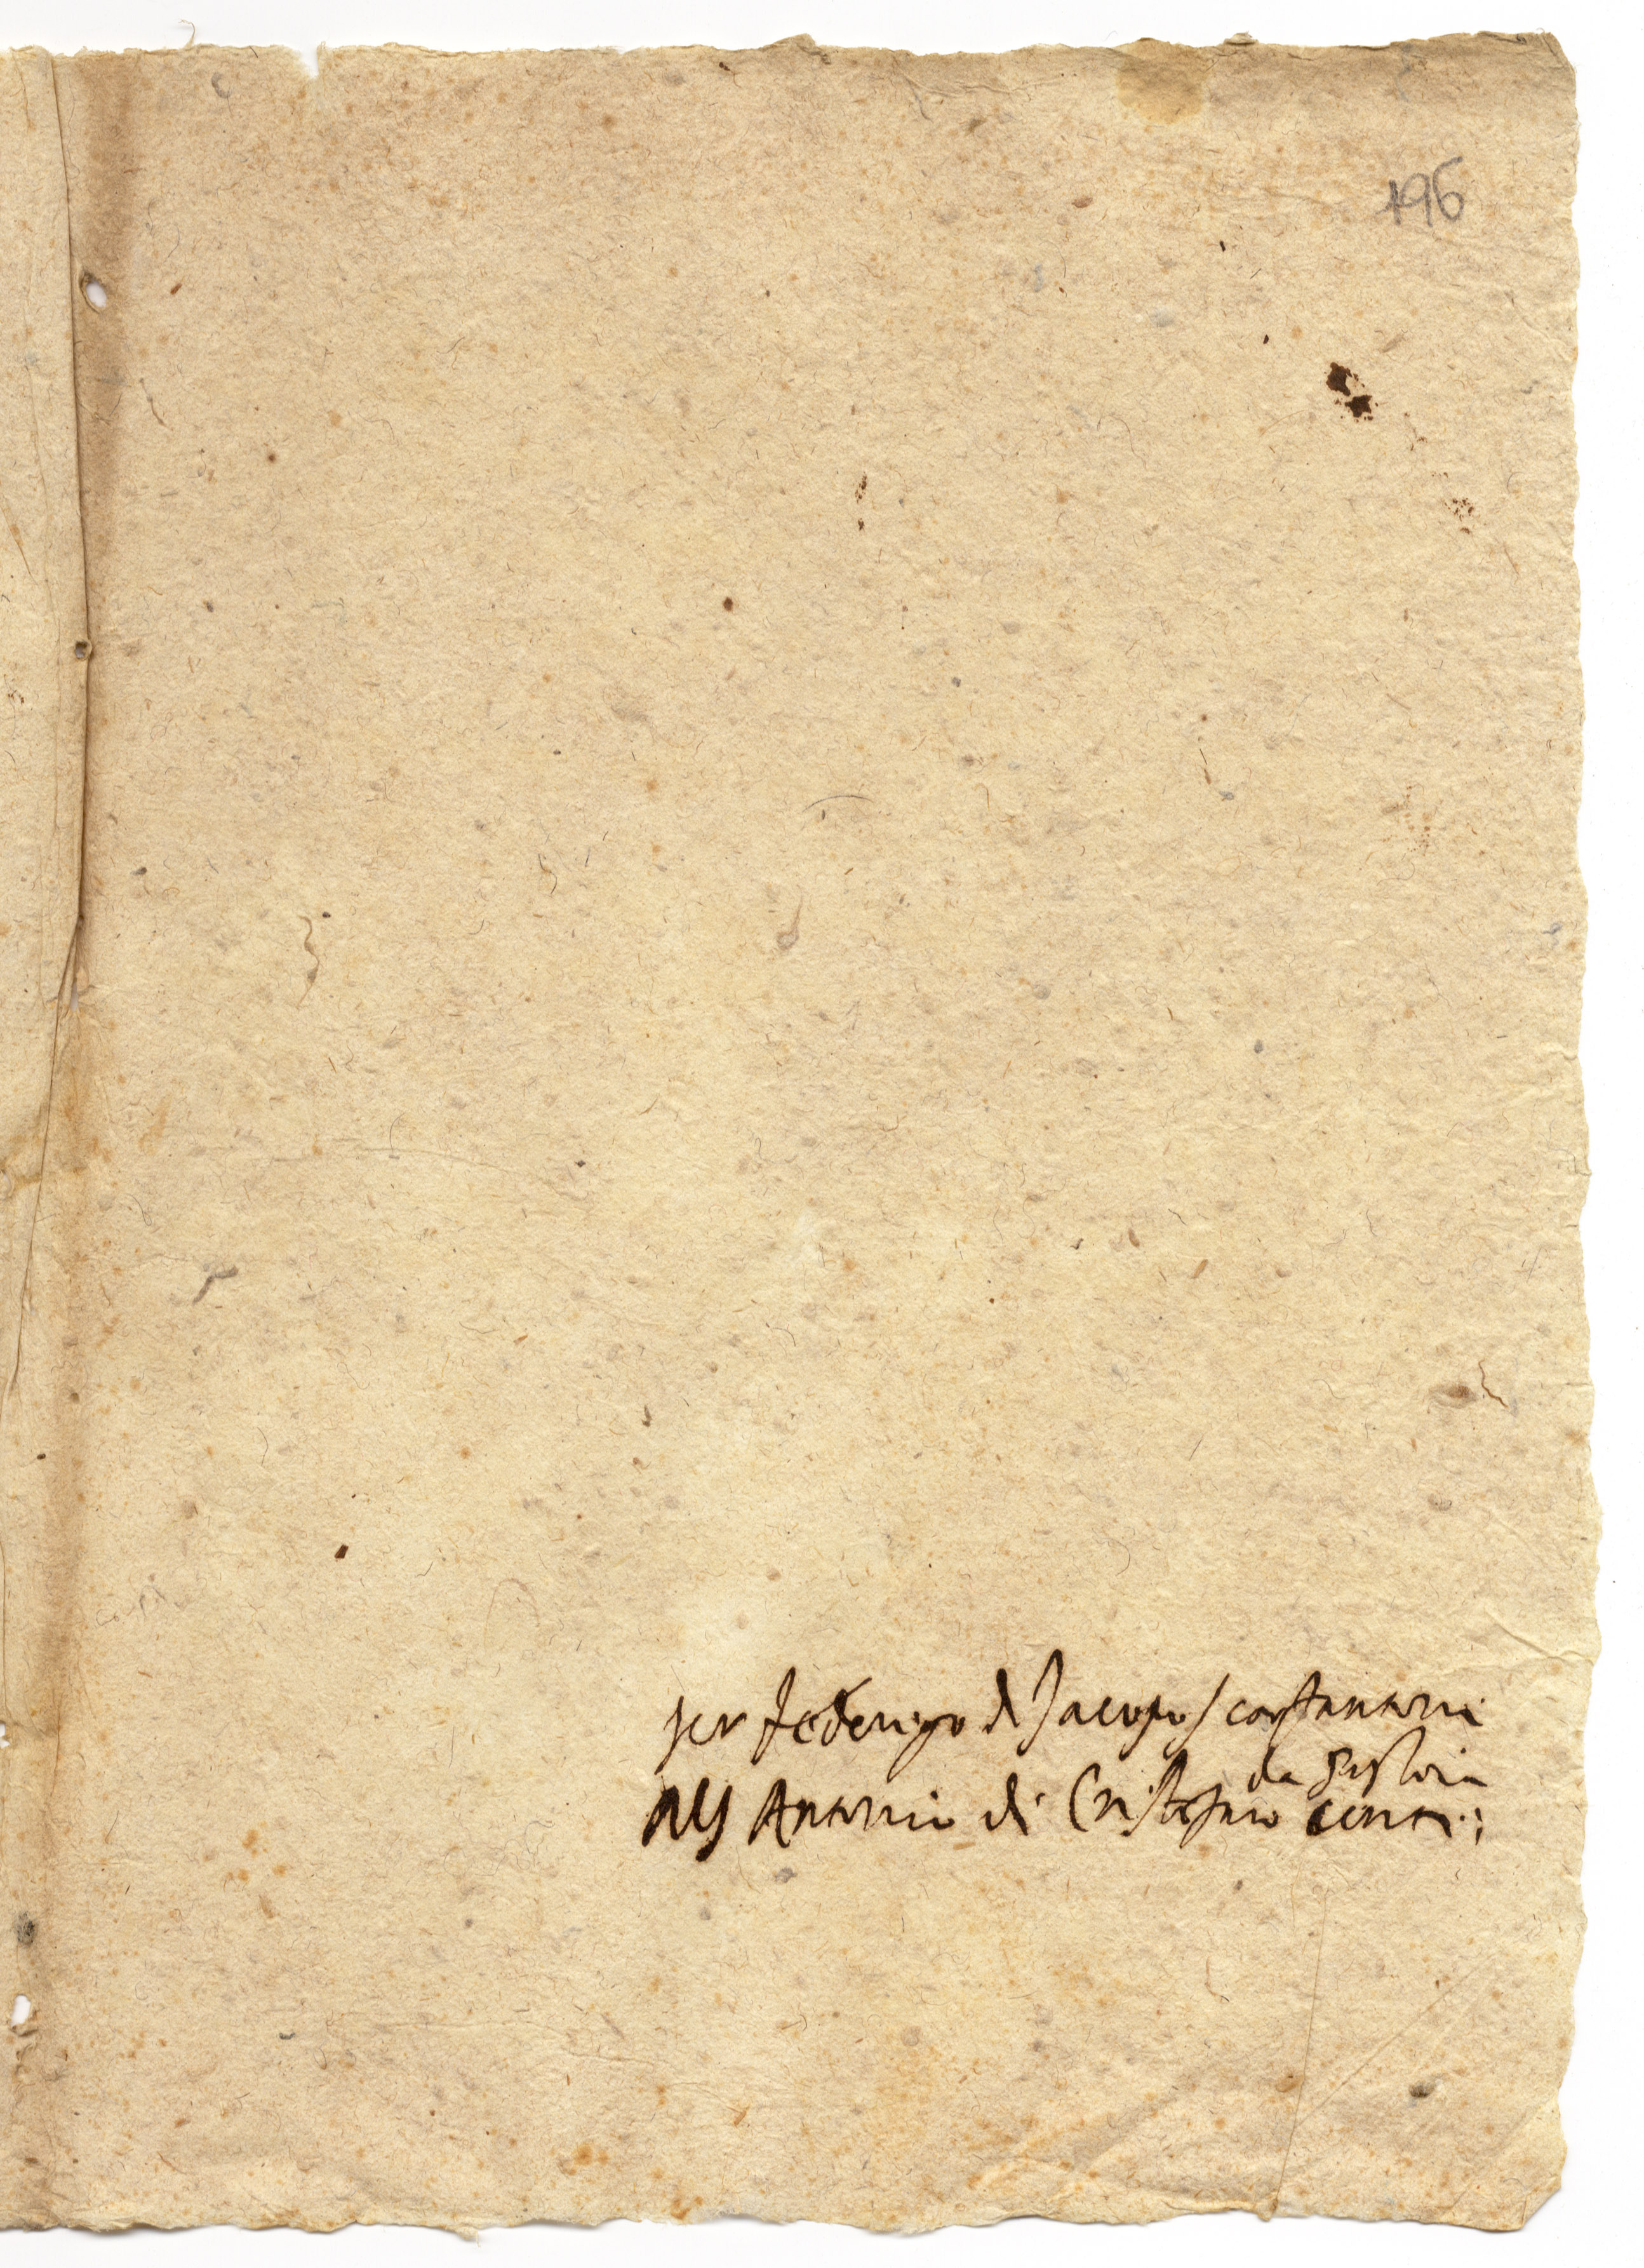 196
per federigo di Jacopo scarfantoni
da pistoia
Antonio di Cristofano conti